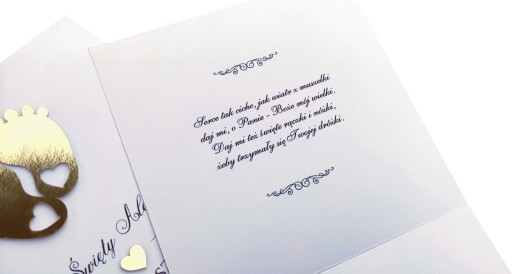 Serce tak ciche, jak wiatr z muszelki
daj mi, o Panie - Boże mój wielki.
Daj mi też święte rączki i nóżki,
żeby trzymały się Twojej dróżki.
Święty Ale